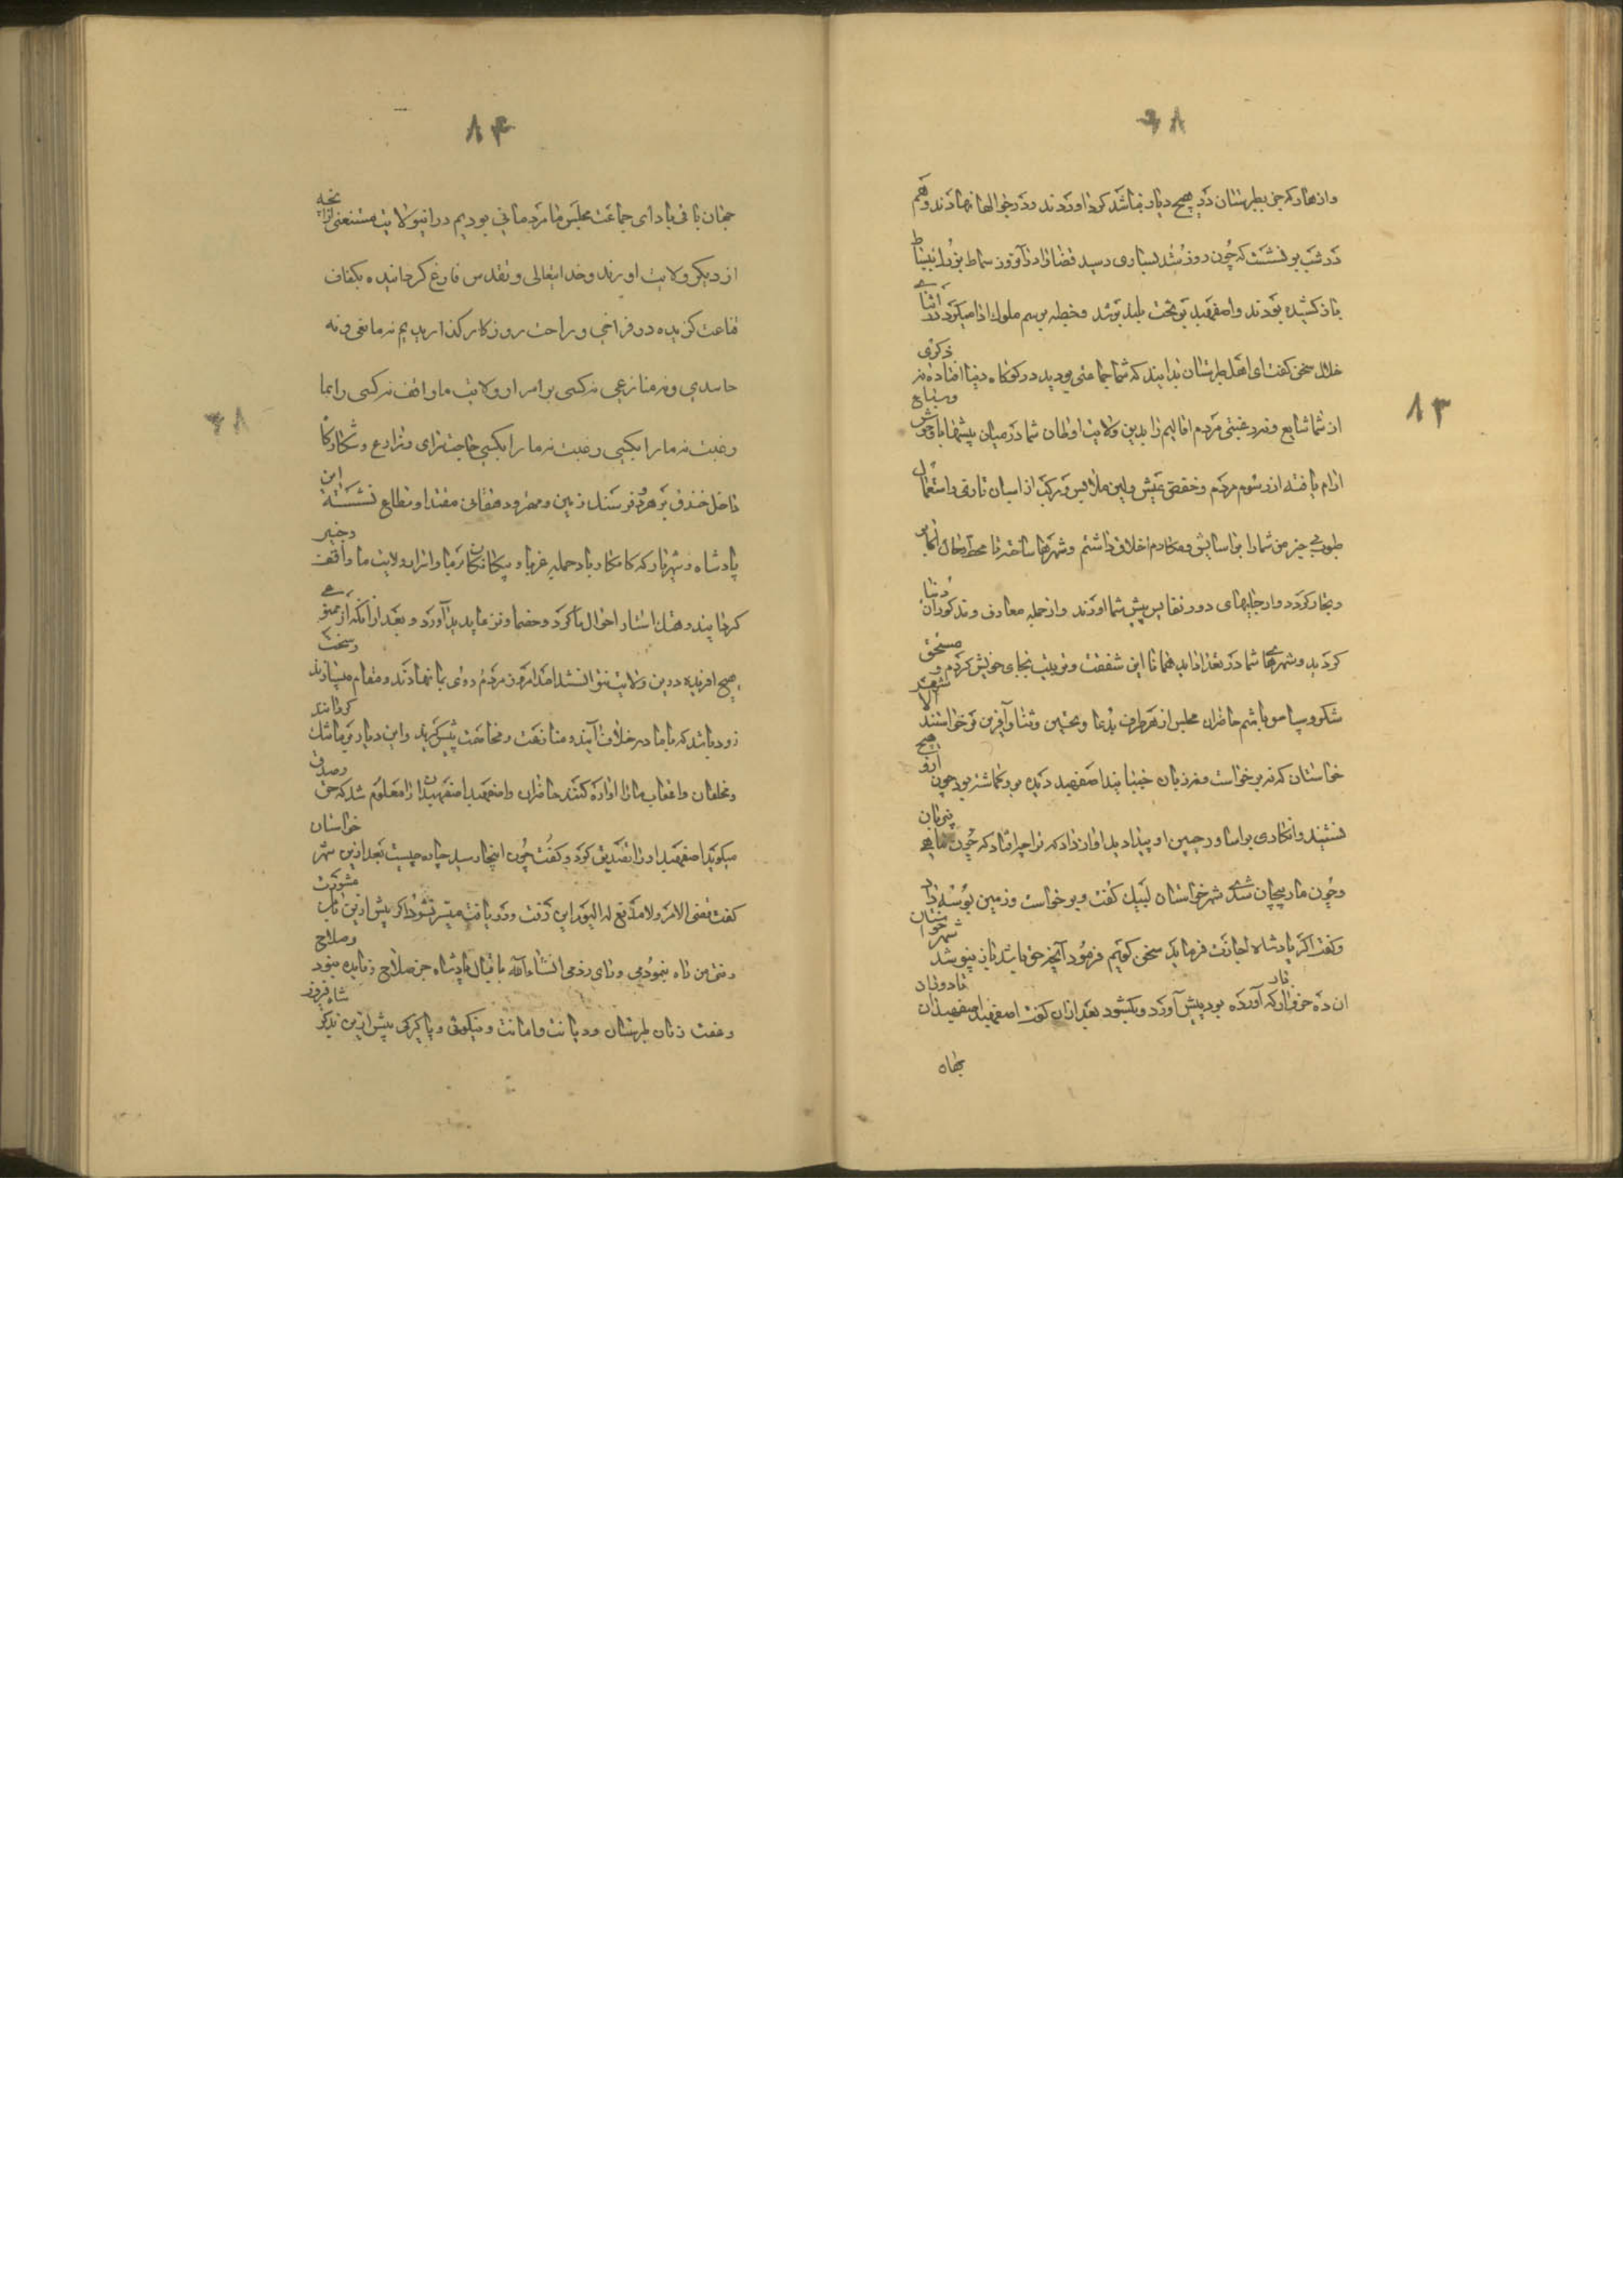 ۸۴
وازهار که جز بطبرستان در هیچ دیار نباشد کرد اوردند ودر خوالها نهادند وهم
در شب بر نشست که چون روز شد بساری رسید قضا را در آنروز سماط نوروز
باز کشیده بودند واصفهبد بر تخت بلند بر شد وخطبه برسم ملوک ادا میکرد در اثنای
خلال سخن کفت ای اهل طبرستان بدانید که شما جماعتی بودید در کوشاه دنیا افتاده نه ذکری
از شما شایع ونه رغبتی مردم اقالیم را بدین ولایت اوطان شما در میان بیشها با وحوش وسباع
ارام یافته از رسوم مردم وخفض عیش ولین ملابس ومرکب از اسبان تازی واستعمال
طیوب جز من شما را بر اسایش ومکارم اخلاق داشتم وشهرها ساخته تا محط رحال
وتجار کردد واز جایهای دور نفایس پیش شما اورند واز جمله معارف ومذکوران دنیا
کردید وشهرهای شما در تعداد اید همانا این شفقت وتربیت بجای خویش کردم ومستحق
شکر وسپاس باشم حاضران مجلس از هر طرف بدعا وتحسین وثنا وآفرین برخواستند الا شهر
خواستان که نه برخواست ونه زبان جنبانید اصفهبد دیده بر وی کماشته بود چون هیچ ازو
نشنید وانکاری بر اسارر جبین او پیدا دید اواز داد که ترا چه افتاد که چون ماهی
وچون مار پیچان شدی شهرخواستان لبیک کفت وبرخواست وزمین بوسه داد
وکفت اکر پادشاه اجازت فرماید سخن کویم فرمود آنچه حق باشد باز نپوشد شهرخواستان
ان ده خروار که آورده بود پیش آورد وبکشود بعد ازان کفت اصفهبد اصفهبدان
بقاه
۸۳
۸۴
جهان باقی باد ای جماعت مجلس ما مردمانی بودیم در اینولایت مستغنی از آنچه
از دیکر ولایت اورند وخدایتعالی وتقدس فارغ کرداننیده بکفاف
قناعت کزیده در فراخی وراحت روزکار کذارییدیم نه مانعی ونه
حاسدی ونه منازعی نه کسی بر اسرار ولایت ما واقف نه کسی را بما
رغبت نه ما را بکسی رغبت نه ما را بکسی حاجت سرای ومزارع وشکارکاه
داخل خندق بر هر دو فرسنک زمین ومهتر ودهقانی مقتدا ومطاع نشسته این
پادشاه وشهریار که کامکار باد جمله غربا وبیکانکان بر ما واسرار ولایت ما واقف وخبیر
کردانید وهتک استار احوال ما کرد وخصما ومنازعان پدید آورد وبعد از آنکه از
هیچ آفریده درین ولایت نتوانستند امد امروز مردم روی بما نهادند ومقام میسازند
زود باشد که با ما در خلاف آیند ومنازعت ومخاصمت پیش کیرند واین دیار بر ما تنک کردانند
ومخلفان واعقاب ما را اواره کنند حاضران واصفهبد اصفهبدان را معلوم شد که حق وصدق
میکوید اصفهبد او را تصدیق کرد وکفت چون اینجا رسید چاره چیست بعد ازین شهر خواستان
کفت قضی الامر ولا مدفع له الیوم این رفت ودر یافت میسر نشود اکر پیش ازین با من مشورت
رفتی من راه نمودمی ورای زدمی انشاءالله باقبال پادشاه جز صلاح وصلاح
وعفت زنان طبرستان ودیانت وامانت ونیکوئی وپاکیزکی پیش ازین بذکر شاه فیروز